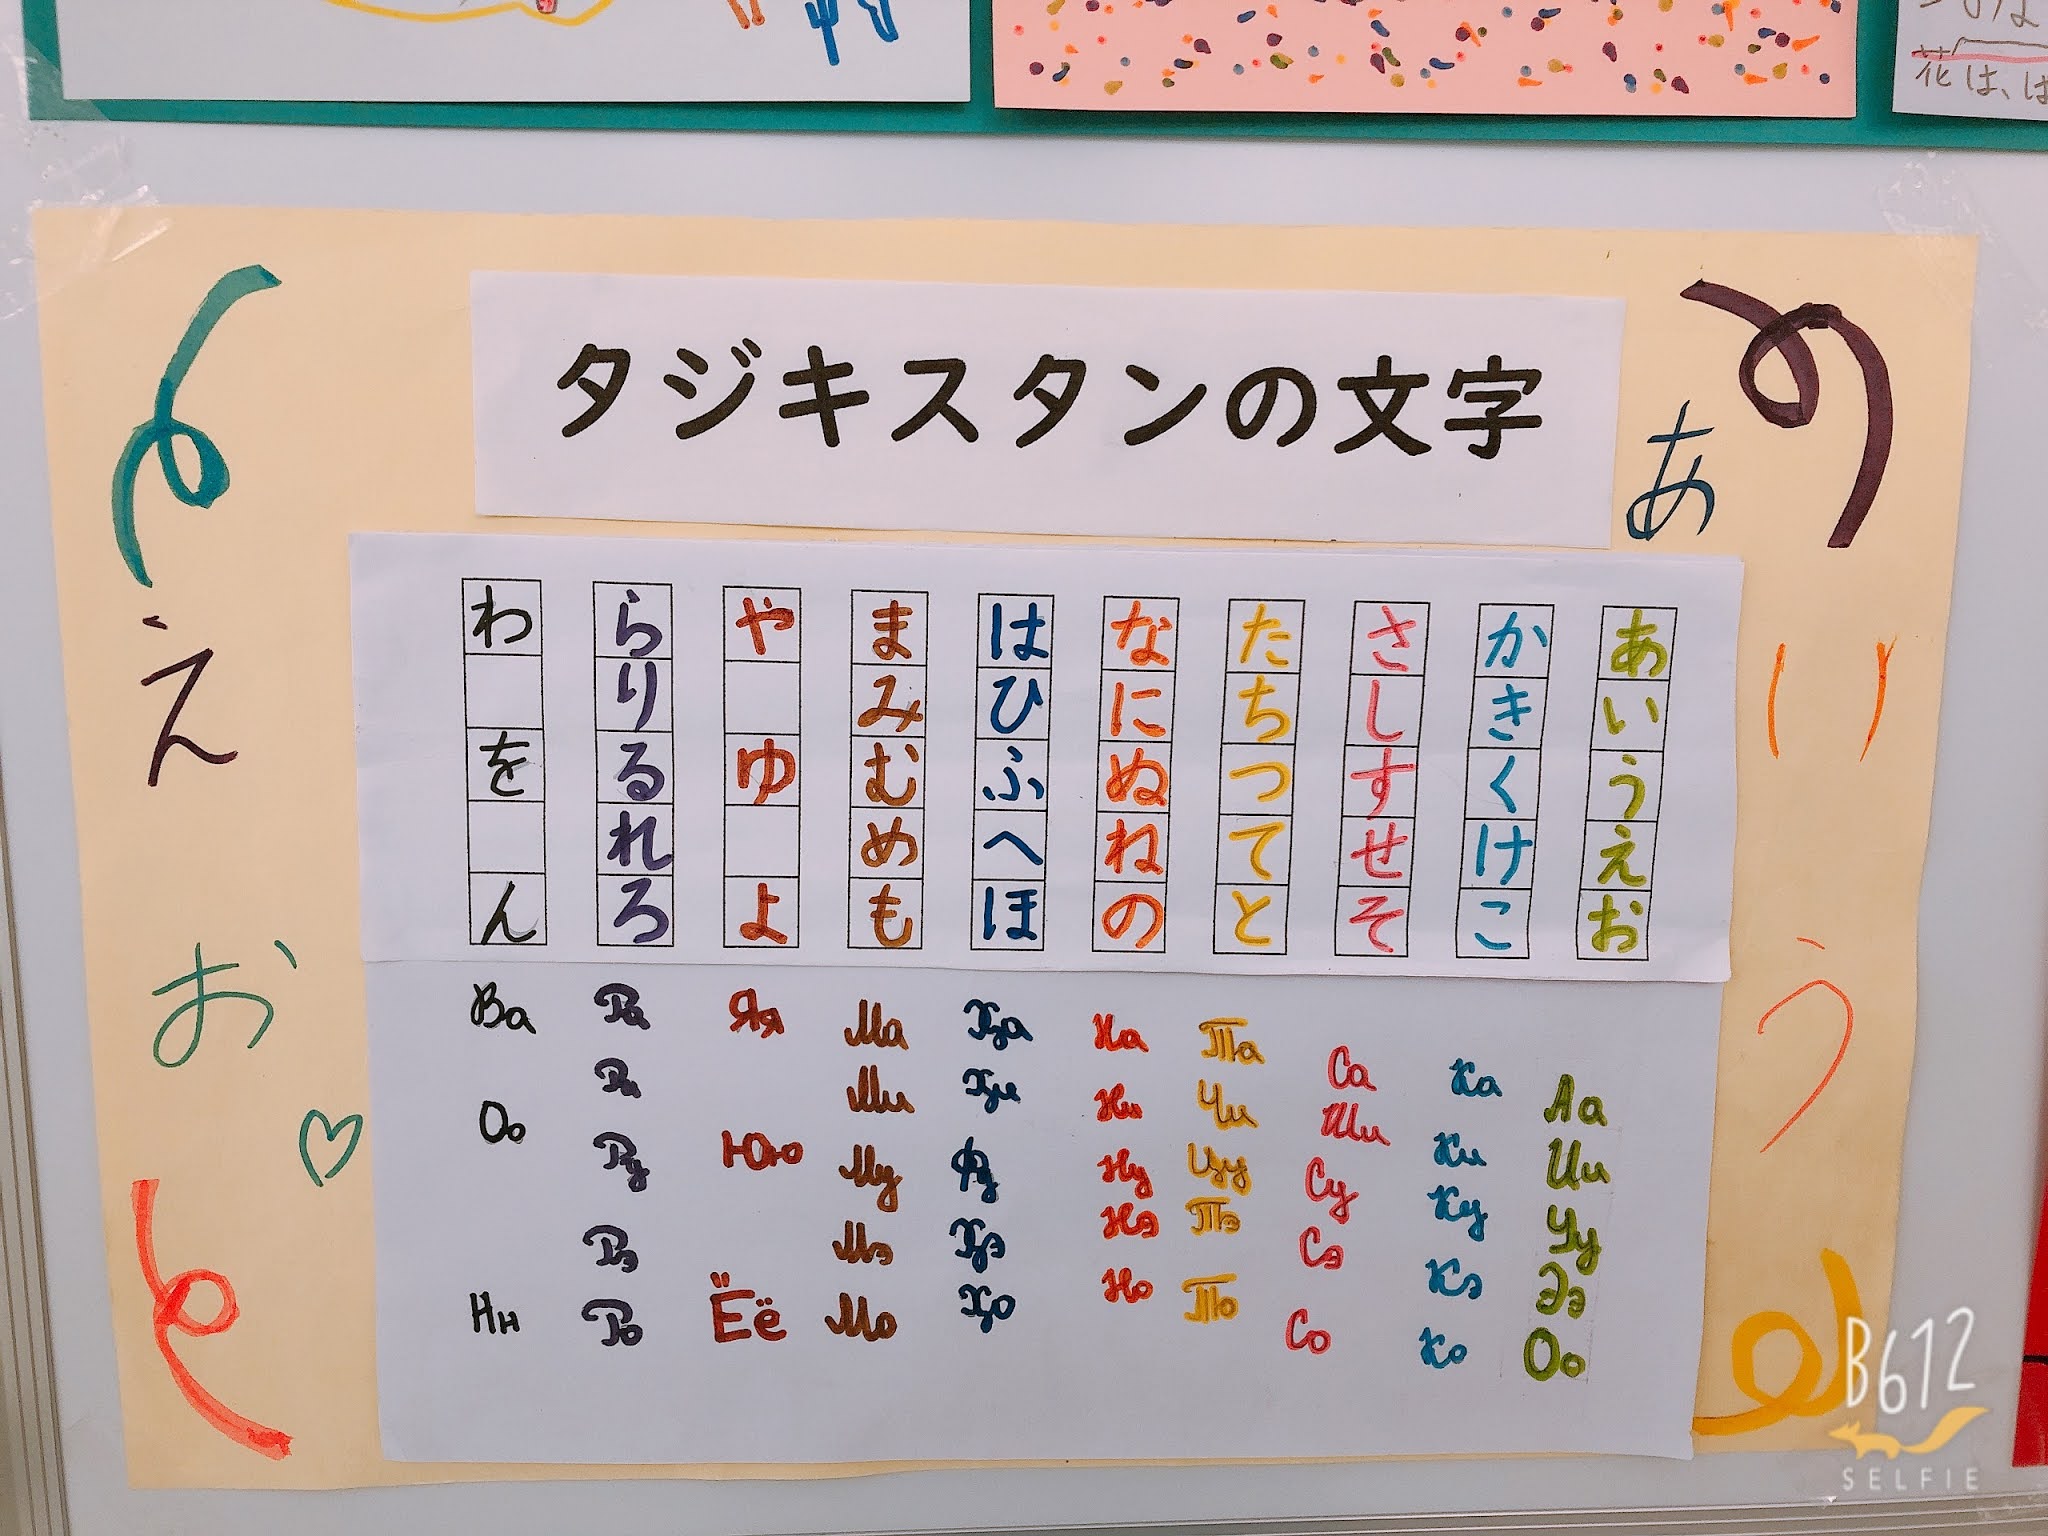 花は、は
タジキスタンの文字
あ
い
う
え
お
あいうえお
かきくけこ
さしすせそ
たちつてと
なにぬねの
はひふへほ
まみむめも
やゆよ
らりるれろ
わをん
Аа Ии Уу Ээ Оо
Ка Ки Ку Кэ Ко
Са Ши Су Сэ Со
Та Чи Цу Тэ То
На Ни Ну Нэ Но
Ҳа Ҳи Фу Ҳэ Ҳо
Ма Ми Му Мэ Мо
Яя Юю Ёё
Ра Ри Ру Рэ Ро
Ва Оо Нн
B612
SELFIE